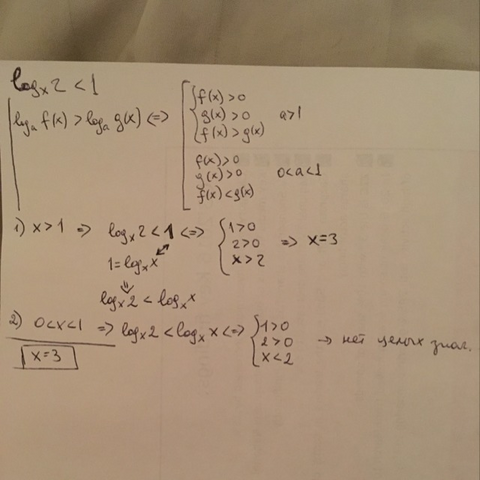 logₓ2 < 1
logₐ f(x) > logₐ g(x) <=> [ { f(x) > 0
g(x) > 0
f(x) > g(x)
a > 1
f(x) > 0
g(x) > 0
f(x) < g(x)
0 < a < 1
1) x > 1 => logₓ2 < 1 <=> { 1 > 0
2 > 0
x > 2
=> x = 3
1 = logₓx
⇓
logₓ2 < logₓx
2) 0 < x < 1 => logₓ2 < logₓx <=> { 1 > 0
2 > 0
x < 2
→ нет целых знач.
x = 3